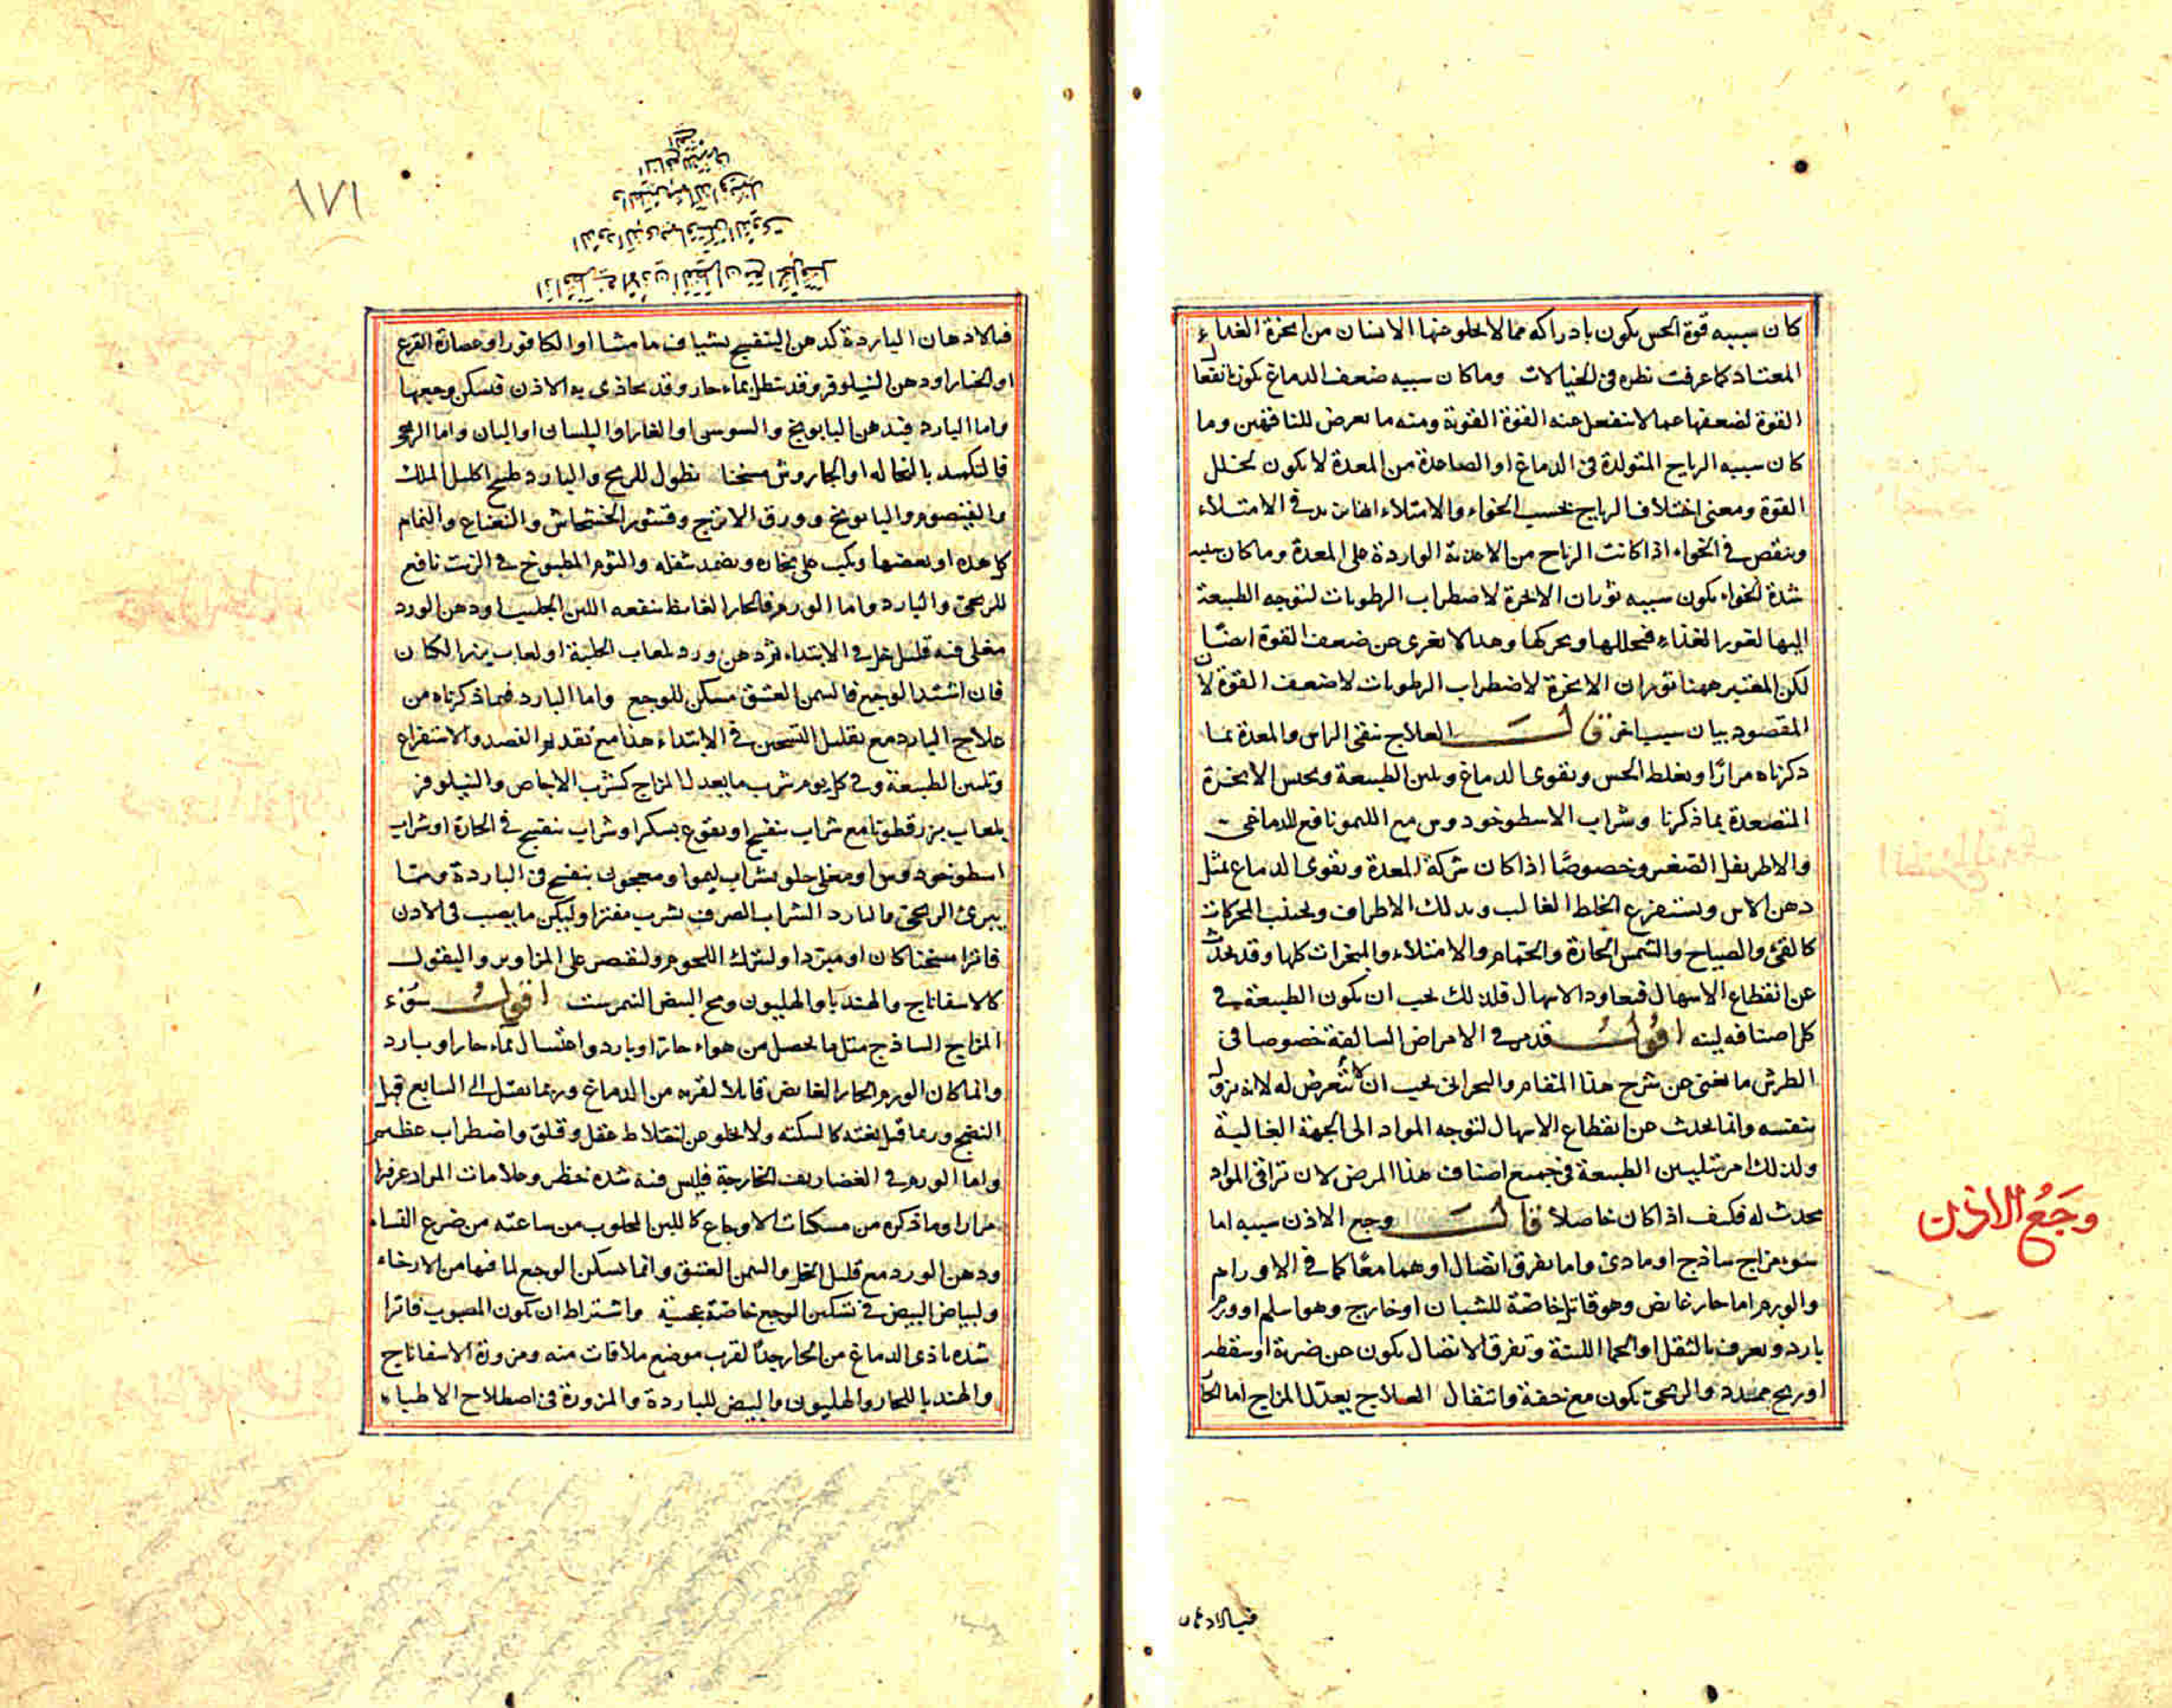 كان سببه قوة الحس يكون بادراكه مما لا يخلو عنها الانسان من ابخرة الغداء
المعتاد كما عرفت نظره في الخيالات وما كان سببه ضعف الدماغ يكون
القوة لضعفها عما لا تنفعل عنه القوة القوية ومنه ما يعرض للناقهين وما
كان سببه الرياح المتولدة في الدماغ او الصاعدة من المعدة لا يكون لخلل
القوة ومعنى اختلاف الرياح بحسب الخواء والامتلاء انها تزيد في الامتلاء
وينقص في الخواء اذا كانت الرياح من الاغذية الواردة على المعدة وما كان سببه
شدة الخواء يكون سببه ثوران الابخرة لاضطراب الرطوبات لتوجه الطبيعة
اليها لعوز الغذاء فيحللها ويحركها وهذا لا يعرى عن ضعف القوة ايضًا
لكن المعتبر ههنا ثوران الابخرة لاضطراب الرطوبات لا ضعف القوة لان
المقصود بيان سبب اخر قالَ العلاج ينقى الراس والمعدة بما
ذكرناه مرارًا ويغلظ الحس ويقوى الدماغ ويلين الطبيعة ويحبس الابخرة
المتصعدة بما ذكرنا وشراب الاسطوخودوس مع الليمو نافع للدماغى
والاطريفل الصغير وخصوصًا اذا كان شركة المعدة ويقوى الدماغ بمثل
دهن الاس ويستفرغ الخلط الغالب ويدلك الاطراف ويجتنب الحركات
كالقئ والصياح والشمس الحارة والحمام والامتلاء والمبخرات كلها وقد يحدث
عن انقطاع الاسهال فيعاود الاسهال فلذلك يجب ان يكون الطبيعة في
كل اصنافه لينه اقولُ قد مر في الامراض السالفة خصوصا في
الطرش ما يغنى عن شرح هذا المقام والبحرانى يجب ان لا تتعرض له لانه يزول
بنفسه وانما يحدث عن انقطاع الاسهال لتوجه المواد الى الجهة العالية
ولذلك امر بتليين الطبيعة في جميع اصناف هذا المرض لان تراقى المواد
يحدث له فكيف اذا كان حاصلا قالَ وجع الاذن سببه اما
سوء مزاج ساذج او مادى واما تفرق اتصال او هما معًا كما في الاورام
والورم اما حار غايض وهو قاتل خاصّة للشبان او خارج وهو اسلم او ورم
بارد ويعرف بالثقل او الحما اللينة وتفرق الاتصال يكون عن ضربة او سقطه
او ريح ممدده والريحى يكون مع خفة وانتقال العلاج يعدّل المزاج اما الحار
وجع الاذن
فبالادهان
١٧١
فبالادهان الباردة كدهن البنفسج بشياف مامشا او الكافور او عصارة القرع
او الخيار او دهن النيلوفر وقد تنطل بماء حار وقد يحاذى به الاذن فيسكن وجعها
واما البارد فبدهن البابونج والسوسن او الغار او البلسان او البان واما الريحى
فالتكميد بالنخاله او الجاروش مسخنا نطول للريح والبارد طبيخ اكليل الملك
والقيصوم والبابونج وورق الاترج وقشور الخشخاش والنعناع والنمام
كل هذه او بعضها ويكب على بخاره ويضمد بثفله والثوم المطبوخ في الزيت نافع
للريحى والبارد واما الورم فالحار الغايض ينفعه اللبن الحليب او دهن الورد
مغلى فيه قليل خل في الابتداء ثم دهن ورد بلعاب الحلبة او لعاب بزر الكتان
فان اشتد الوجع فالسمن العتيق مسكن للوجع واما البارد فبما ذكرناه من
علاج البارد مع تقليل التسخين في الابتداء هذا مع تقديم الفصد والاستفراغ
وتليين الطبيعة وفي كل يوم شرب ما يعدل المزاج كشراب الاجاص والنيلوفر
بلعاب بزر قطونا مع شراب بنفسج او نقوع بسكر او شراب بنفسج في الحارة او شراب
اسطوخودوس او مغلى حلو بشراب ليمو او معجون بنفسج في الباردة ومما
يبرئ الريحى والبارد الشراب الصرف يشرب مفترا وليكن ما يصب في الاذن
فاترا مسخنا كان او مبردا وليترك اللحوم وليقتصر على المزاوير والبقول
كالاسفاناج والهندبا والهليون ومح البيض النمبرشت اقولُ سوء
المزاج الساذج مثل ما يحصل من هواء حار او بارد واغتسال بماء حار او بارد
وانما كان الورم الحار الغايض قاتلا لقربه من الدماغ وربما يقتل الى السابع قبل
النضج وربما قتل بغته كالسكته ولا يخلو عن اختلاط عقل وقلق واضطراب عظيم
واما الورم في الغضاريف الخارجية فليس فيه شدة خطر وعلامات المواد عرفتها
مرارا وما ذكره من مسكنات الاوجاع كاللبن المحلوب من ساعته من ضرع النساء
ودهن الورد مع قليل الخل والسمن العتيق وانما يسكن الوجع لما فيها من الارخاء
ولبياض البيض في تسكين الوجع خاصّة عجيبة واشتراط ان يكون المصبوب فاترا
شدة تاذى الدماغ من الحار جدًا لقرب موضع ملاقات منه ومزورة الاسفاناج
والهندبا للحار والهليون والبيض للباردة والمزورة في اصطلاح الاطباء